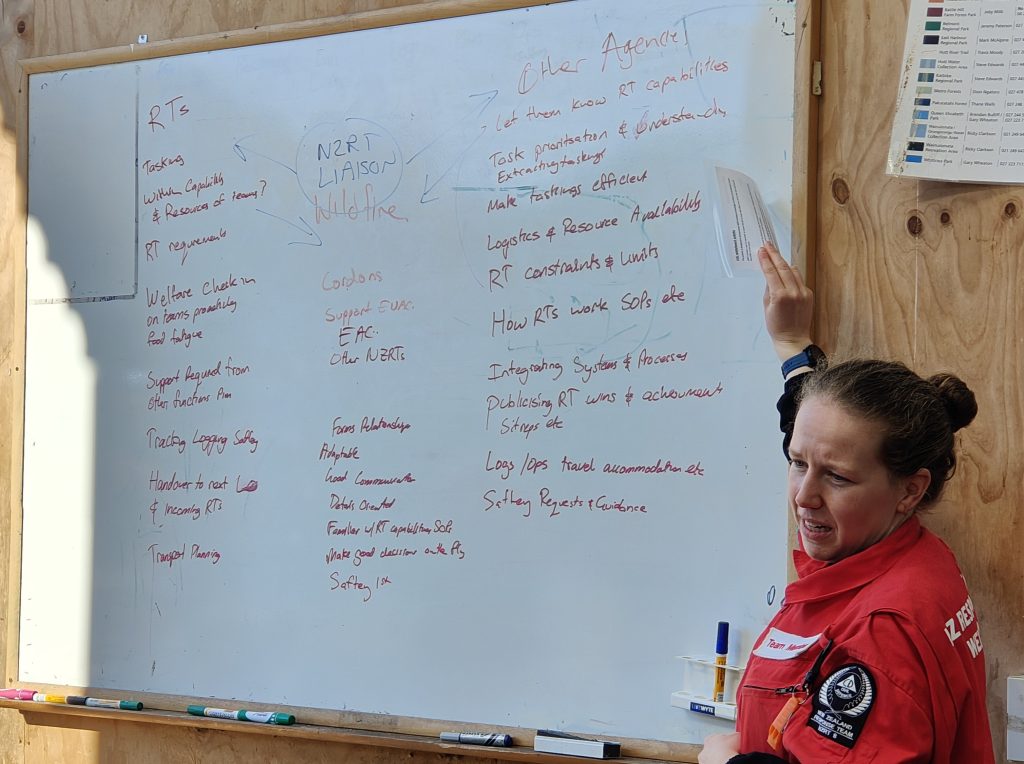 RTs
Tasking
Within Capability
& Resources of teams?
RT requirements
Welfare check in
on teams proactivley
food fatigue
Support Required from
other functions Pim
Tracking Logging Saftey
Handover to next Lo
& incoming RTs
Transport Planning
NZRT
LIAISON
Wildfire
Cordons
Support EVAC.
EAC.
Other NZRTs
Forms Relationships
Adaptable
Good Communicator
Details Oriented
Familiar w/RT capabilities SOPs
Make good decision on the fly
Saftey 1st
Other Agencies
Let them know RT capabilities
Task prioritisation & Understanding
Extracting taskings
Make taskings efficient
Logistics & Resource Availability
RT constraints & Limits
How RTs work SOPs etc
Integrating Systems & Processes
Publicising RT wins &
Sitreps etc
Logs/Ops travel accommodation etc
Saftey Requests & Guidance
Battle Hill
Farm Forest Park
Belmont
Regional Park
East Harbour
Regional Park
Hutt River Trail
Hutt Water
Collection Area
Kaitoke
Regional Park
Metro Forests
Pakuratahi Forest
Queen Elizabeth
Park
Wainuiomata
Recreation Area
Whitireia Park
Jeremy Paterson
Mark McAlpine
Travis Moody
Steve Edwards
Steve Edwards
Thane Walls
Gary Wheaton
Ricky Clarkson
Ricky Clarkson
Gary Wheaton
Team Member
NEW ZEALAND
RESPONSE TEAM